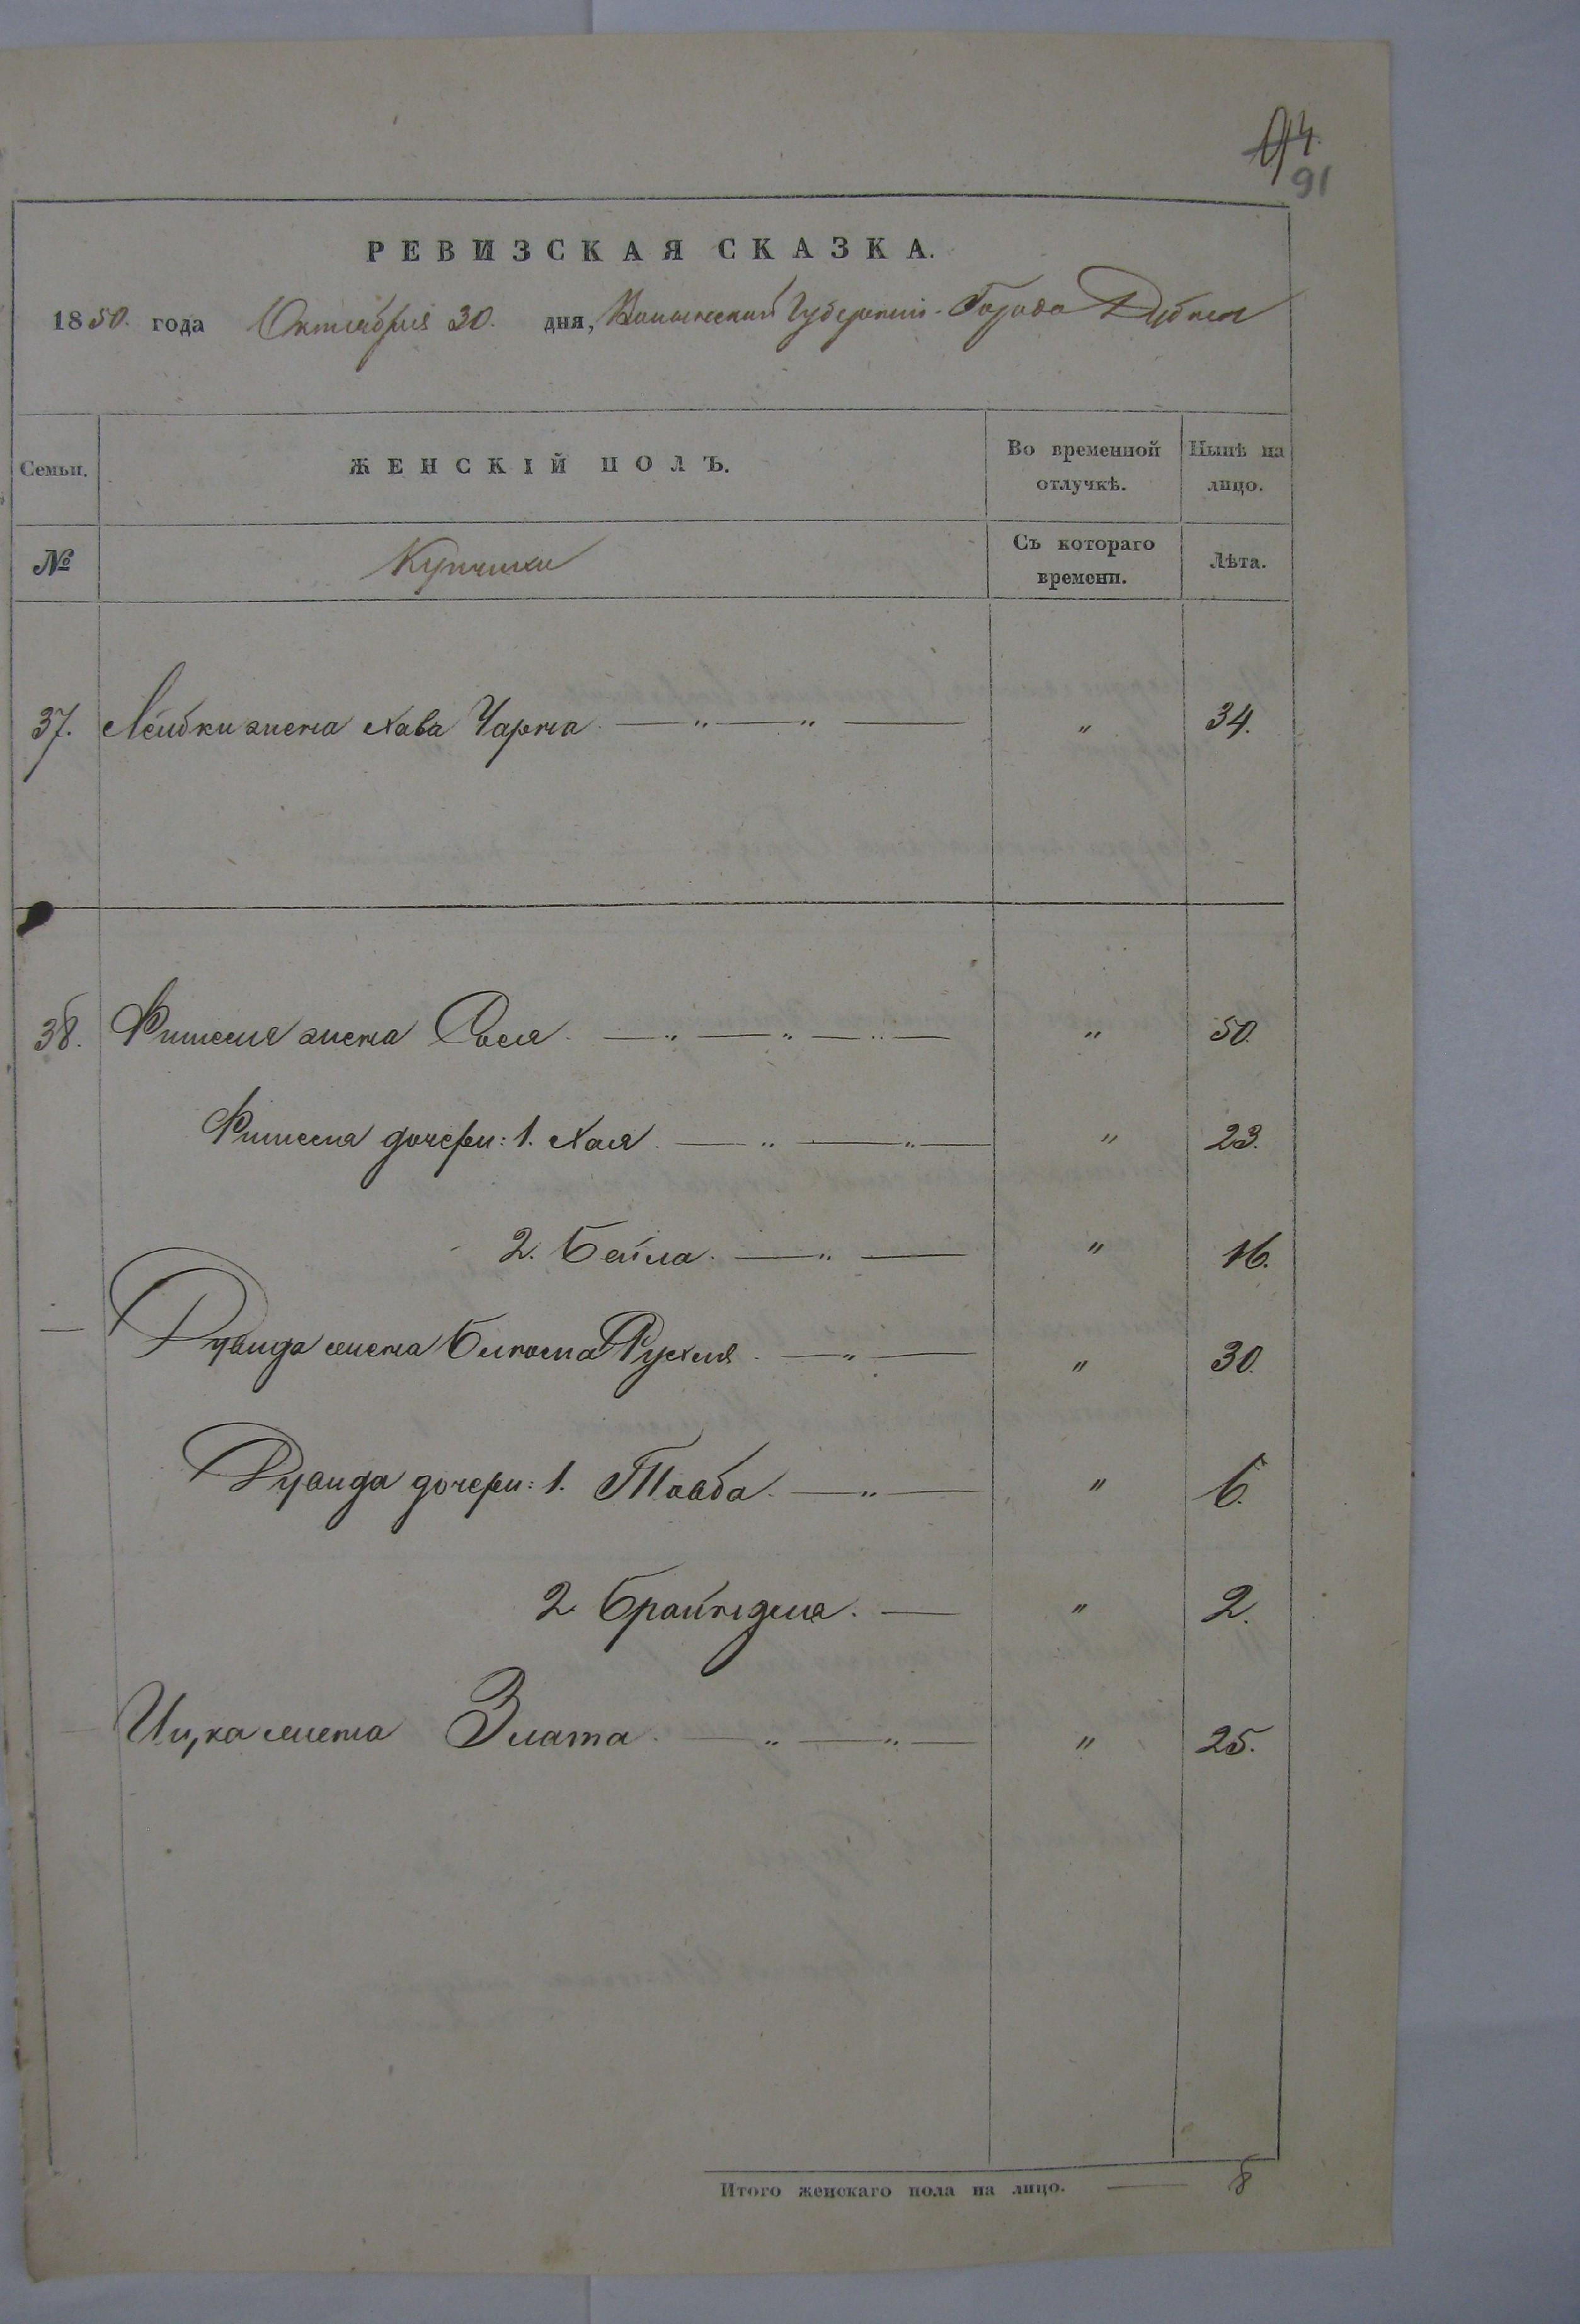 94.
91
РЕВИЗСКАЯ СКАЗКА.
1850. года Октября 30. дня, Волынской Губернии Города Дубна
Семьи. ЖЕНСКІЙ ПОЛЪ. Во временной отлучкѣ. Нынѣ на лицо.
№ Купчихи Съ котораго времени. Лѣта.
37. Лейбки жена Хава Чарна — " — " — " 34.
38. Фишеля жена Рося — " — " — " — " 50.
Фишеля дочери: 1. Хая — " — " — " 23.
2. Бейла. — " — " 16.
— Дувида жена Рухля — " — " 30.
Дувида дочери: 1. Тавба — " — " 6.
2. Брайндля. — " 2.
Ицка жена Злата — " — " — " 25.
Итого женскаго пола на лицо. — 8